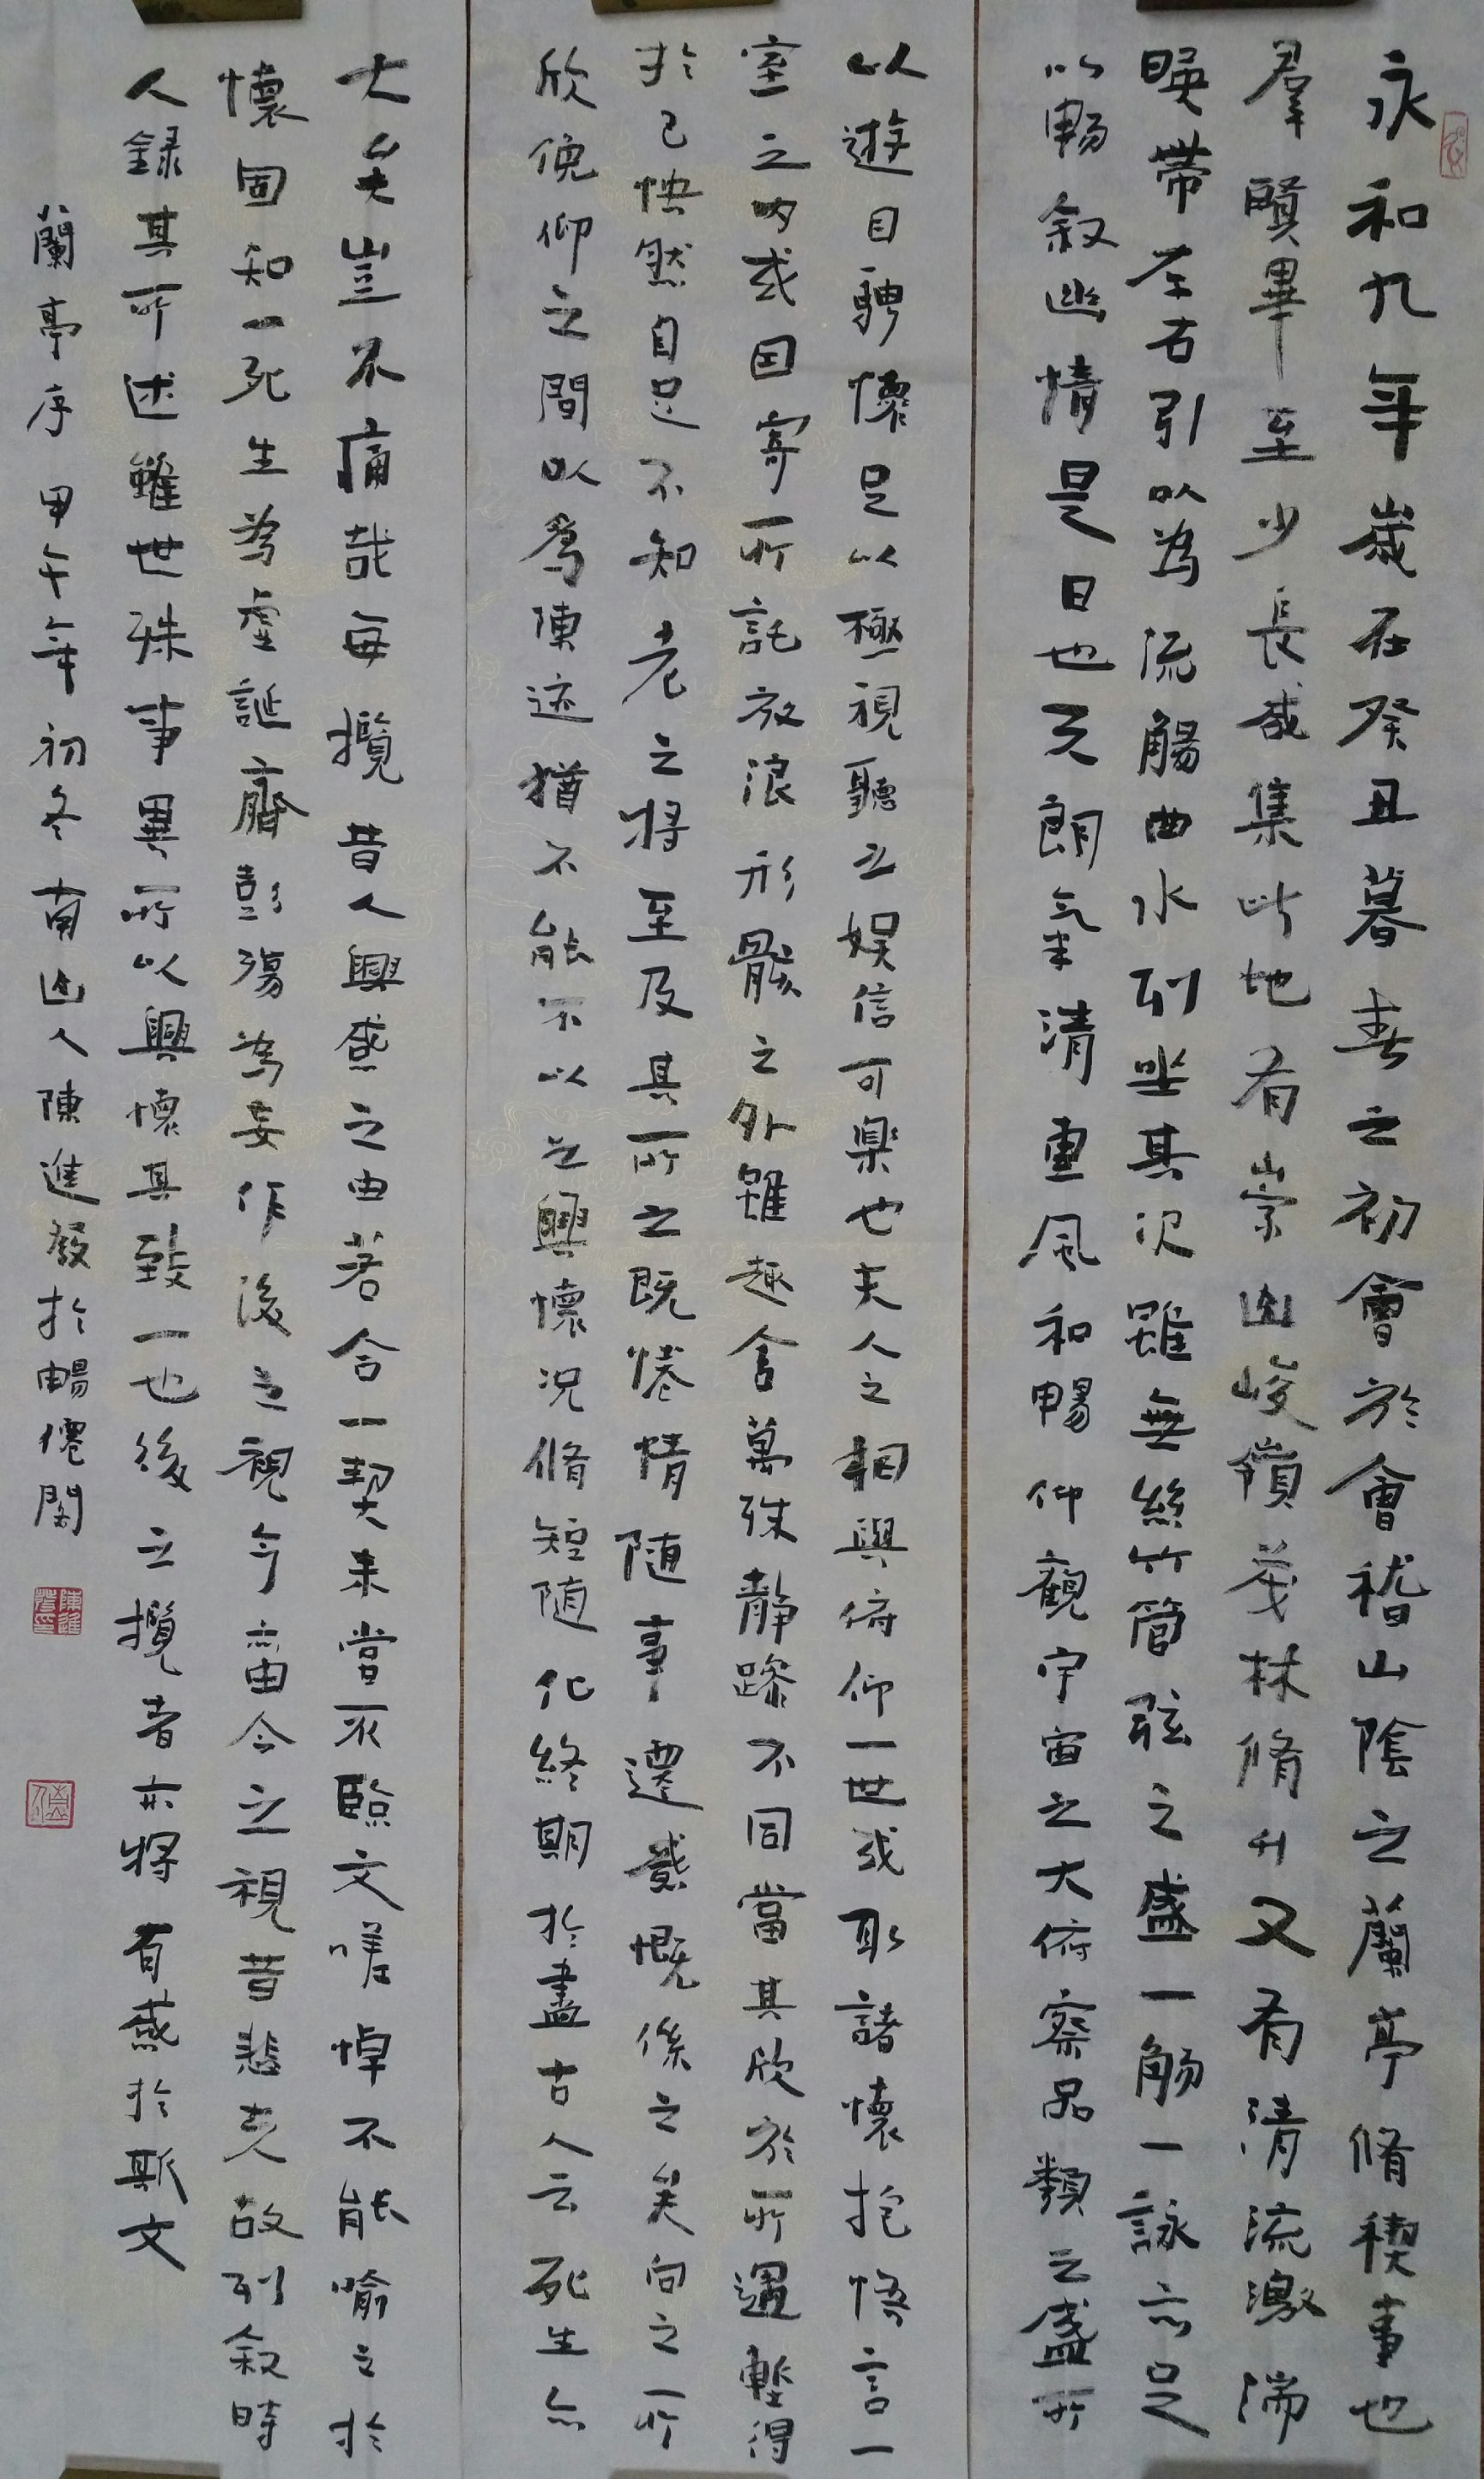 永和九年歲在癸丑暮春之初會於會稽山陰之蘭亭脩稧事也
羣賢畢至少長咸集此地有崇山峻嶺茂林脩竹又有清流激湍
暎帶左右引以為流觴曲水列坐其次雖無絲竹管弦之盛一觴一詠亦足
以暢叙幽情是日也天朗氣清惠風和暢仰觀宇宙之大俯察品類之盛所
以遊目騁懷足以極視聽之娛信可樂也夫人之相與俯仰一世或取諸懷抱悟言一
室之內或因寄所託放浪形骸之外雖趣舍萬殊静躁不同當其欣於所遇暫得
於己怏然自足不知老之將至及其所之既惓情隨事遷感慨係之矣向之所
欣俛仰之間以為陳迹猶不能不以之興懷況脩短隨化終期於盡古人云死生亦
大矣豈不痛哉每攬昔人興感之由若合一契未嘗不臨文嗟悼不能喻之於
懷固知一死生為虛誕齊彭殤為妄作後之視今亦由今之視昔悲夫故列叙時
人録其所述雖世殊事異所以興懷其致一也後之攬者亦將有感於斯文
蘭亭序甲午年初冬南山人陳進發於暢僊閣